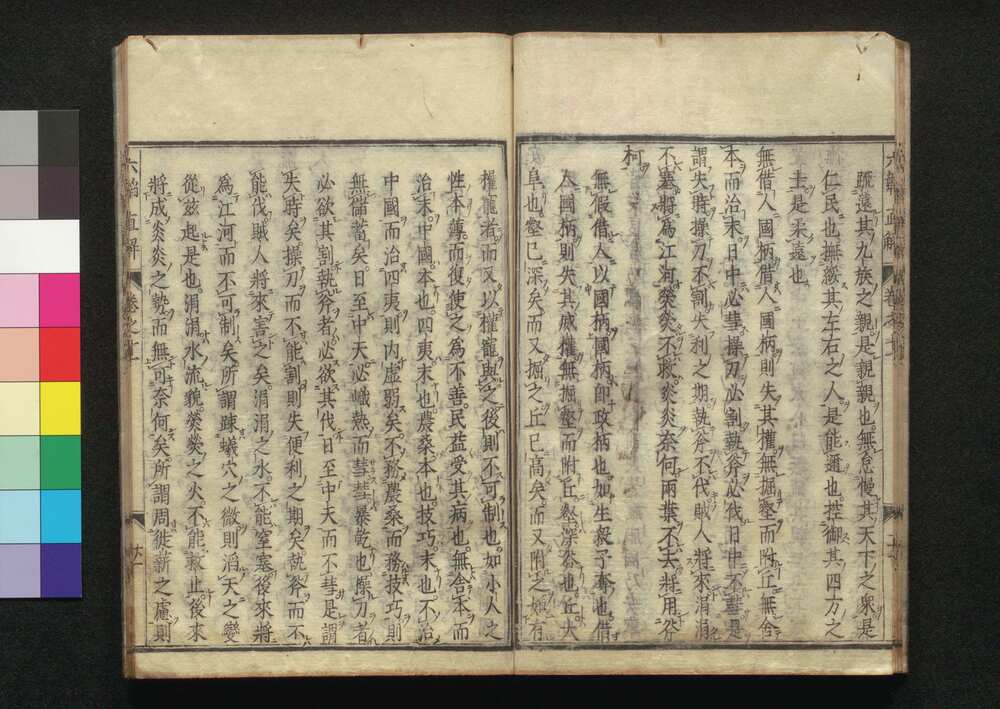 疏遠其九族之親是親親也無怠慢其天下之衆是
仁民也撫緩其左右之人是能邇也控御其四方之
士是柔遠也
無借人國柄借人國柄則失其權無掘壑而附丘無舍
本而治末日中必彗操刀必割執斧必伐日中不彗是
謂失時操刀不割失利之期執斧不伐賊人將來涓涓
不塞將爲江河熒熒不救炎炎奈何兩葉不去將用斧
柯
無假借人以國柄國柄即政柄也如生殺予奪也借
人國柄則失其威權無掘壑而附丘壑深谷也丘大
阜也壑已深矣而又掘之丘已高矣而又附之嬪有
權寵者而又以權寵與之後則不可制也如小人之
性本薄而復使之爲不善民益受其病也無舍本而
治末中國本也四夷末也農桑本也技巧末也不治
中國而治四夷則内虛弱矣不務農桑而務技巧則
無儲蓄矣日至中天必熾熱而彗彗暴乾也操刀者
必欲其割執斧者必欲其伐日至中天而不彗是謂
失時矣操刀而不能割則失便利之期矣執斧而不
能伐賊人將來害之矣涓涓之水不能窒塞後來將
爲江河而不可制矣所謂疎蟻穴之微則滔天之變
從玆起是也涓涓水流貌熒熒之火不能救止後來
將成炎炎之勢而無可奈何矣所謂周徙薪之慮則
六韜直解
卷之一
廿一